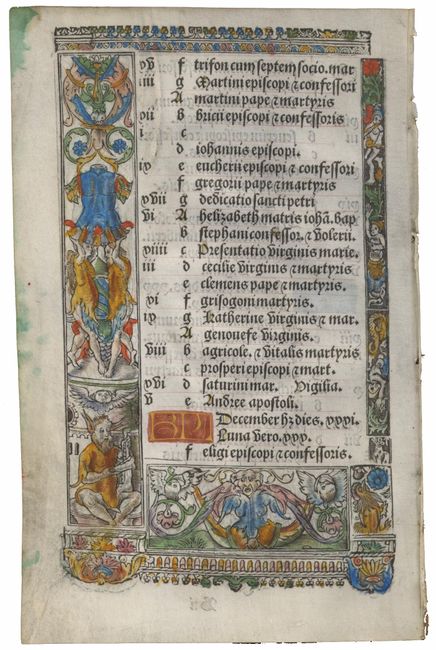 xv f trifon cum septem socio. mar
iiii g Martini episcopi ⁊ confessori
A martini pape ⁊ martyris
xii b bricii episcopi ⁊ confessoris
i c
d iohannis episcopi.
ix e eucherii episcopi ⁊ confessori
f gregorii pape ⁊ martyris
xvii g dedicatio sancti petri
vi A helizabeth matris iohā. bap
b stephani confessor. ⁊ volerii.
xiiii c Presentatio virginis marie.
iii d cecilie virginis ⁊ martyris.
e clemens pape ⁊ martyris.
xi f grisogoni martyris.
ix g Katherine virginis ⁊ mar.
A genouefe virginis.
viii b agricole. ⁊ vitalis martyris
c prosperi episcopi ⁊ mart.
xvi d saturini mar. Vigilia.
v e Andree apostoli.
KL December hȝ dies. xxxi.
Luna vero. xxx.
f eligi episcopi ⁊ confessoris.